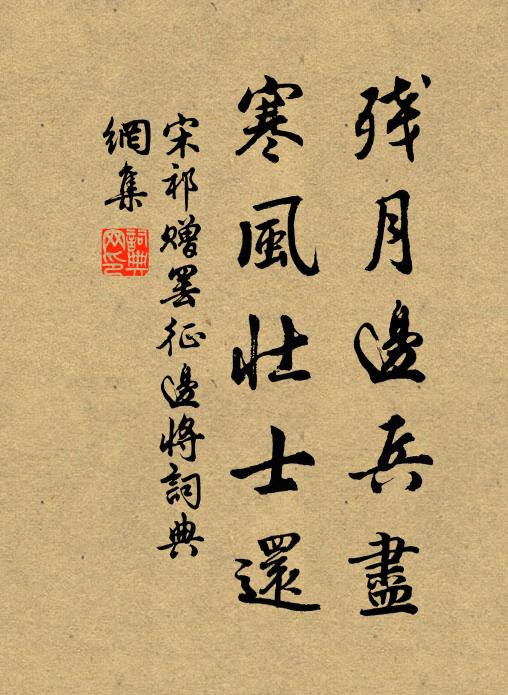 残月邊兵盡
寒風壯士還
宋祁贈罷征邊將詞典
網集
詞典
網印